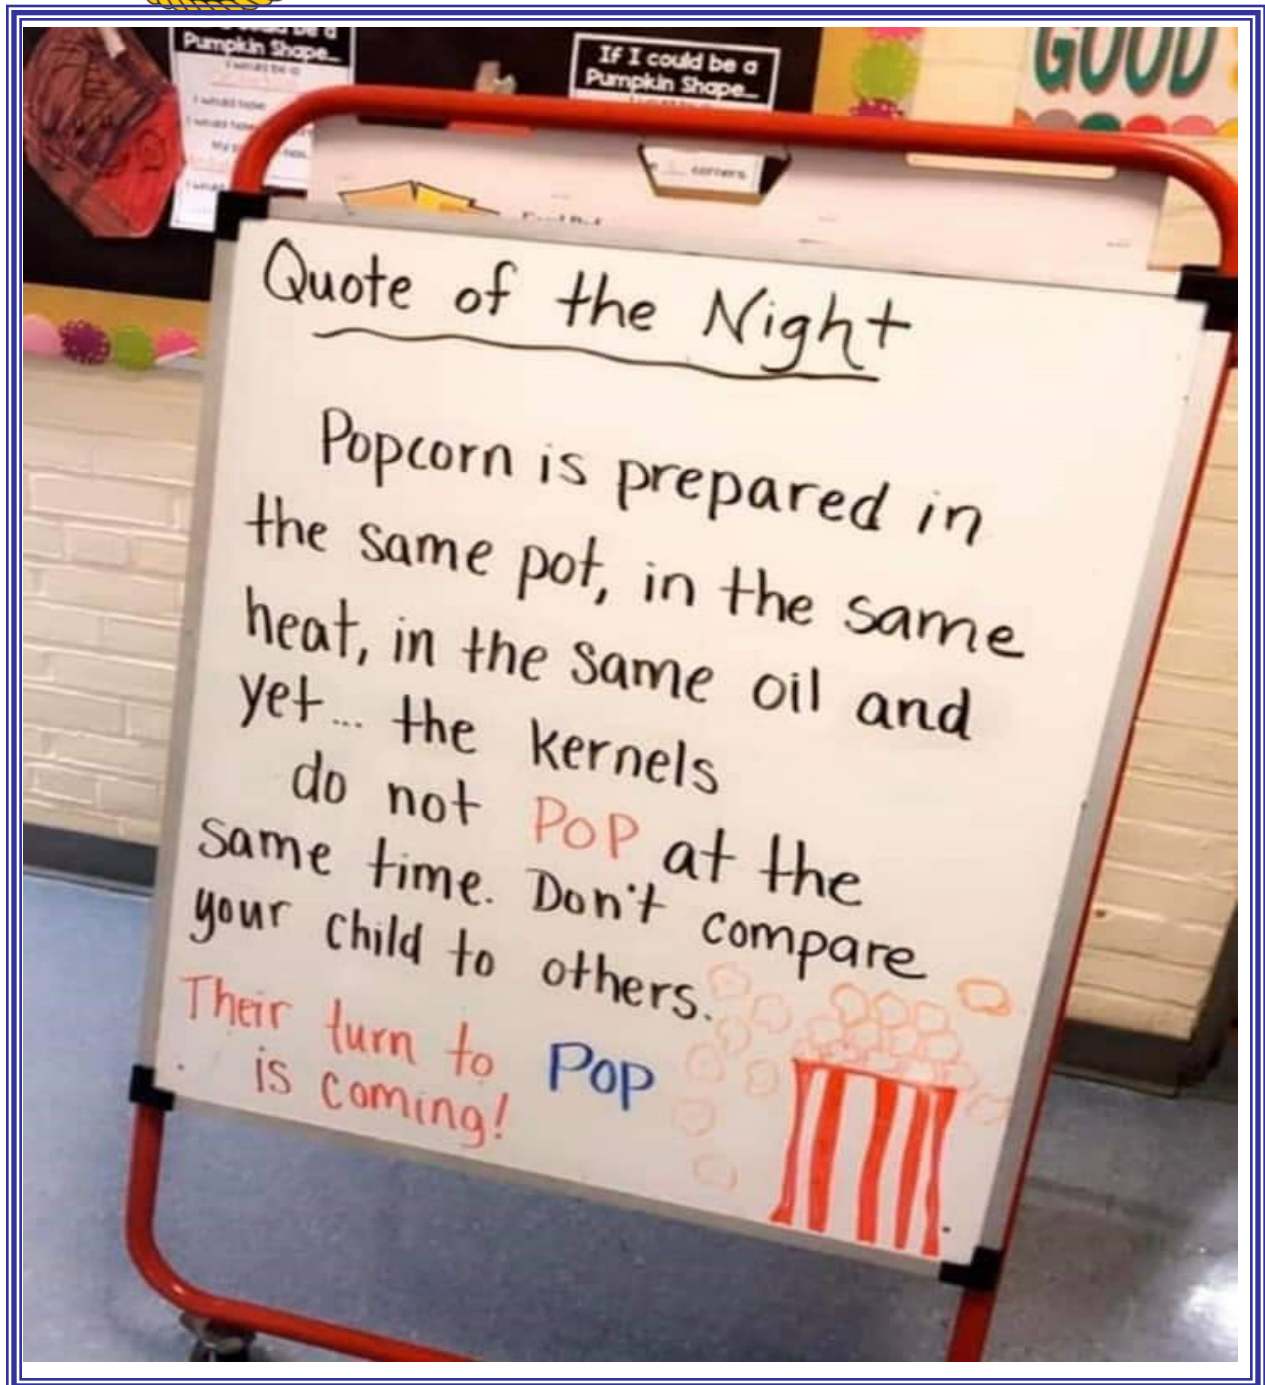 Pumpkin Shape...
I would be a
I would have
If I could be a
Pumpkin Shape...
GOOD
corners
Quote of the Night
Popcorn is prepared in
the same pot, in the same
heat, in the same oil and
yet... the kernels
do not POP at the
same time. Don't compare
your child to others.
Their turn to Pop
is coming!